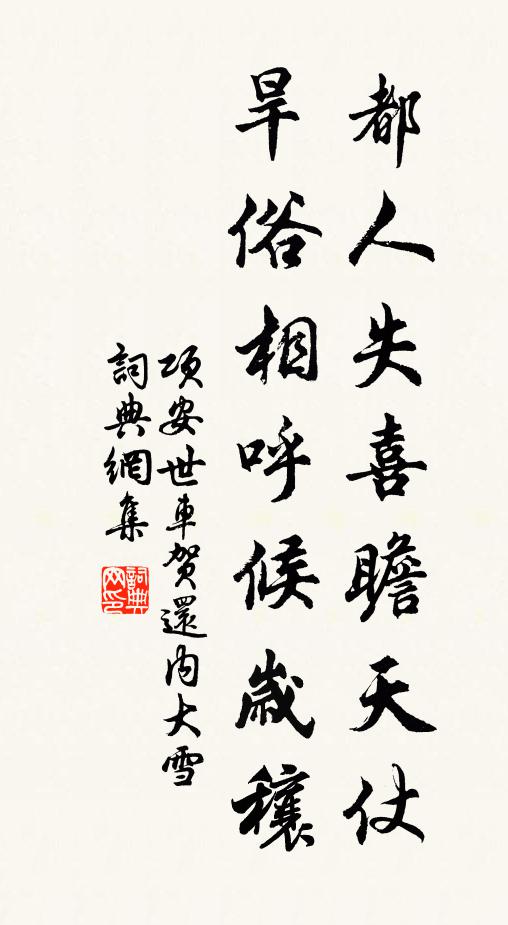 都人失喜瞻天仗
旱俗相呼候歲穰
項安世車賀還內大雪
詞典網集
詞典網印